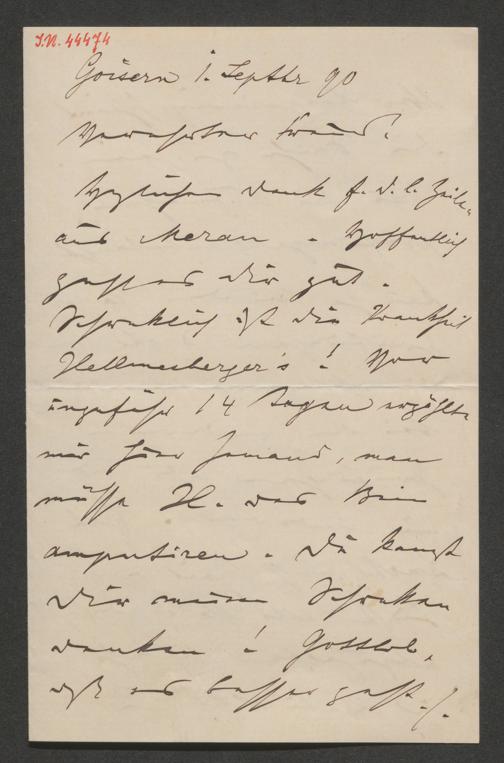 I.N. 44474
Goisern 1. Septbr 90
Verehrter Freund!
Herzlichen Dank f. d. l. Zeilen
aus Meran. Hoffentlich
geht es dir gut.
Schrecklich ist die Krankheit
Hellmesberger's! Vor
ungefähr 14 Tagen erzählte
mir hier Jemand, man
müsse H. das Bein
amputiren. Du kannst
Dir meinen Schrecken
denken! Gottlob,
daß es besser geht.